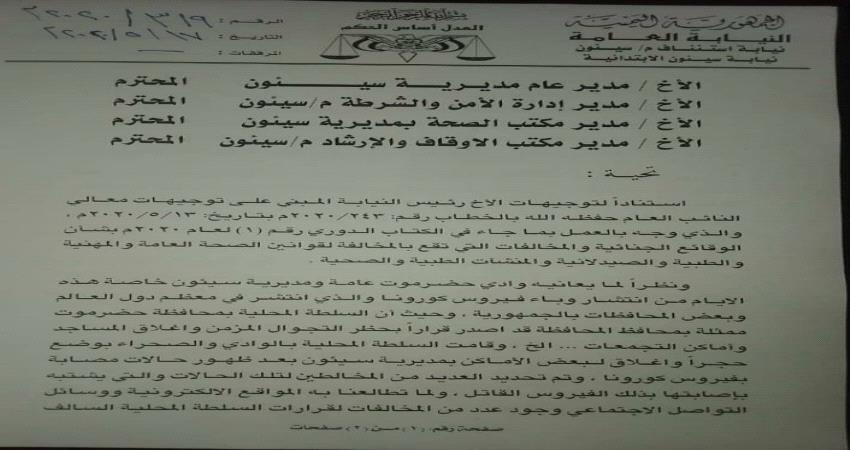 الجمهورية اليمنية
النيابة العامة
نيابة استئناف م/ سيئون
نيابة سيئون الابتدائية
العدل أساس الحكم
الرقم: ٢٠٢٠/٣١٩
التاريخ: ٢٠٢٠/٥/١٧
المرفقات:
الأخ / مدير عام مديرية سيئون المحترم
الأخ / مدير إدارة الأمن والشرطة م/سيئون المحترم
الأخ / مدير مكتب الصحة بمديرية سيئون المحترم
الأخ / مدير مكتب الاوقاف والإرشاد م/سيئون المحترم
تحية :
استناداً لتوجيهات الاخ رئيس النيابة المبني على توجيهات معالي
النائب العام حفظه الله بالخطاب رقم: ٢٠٢٠/٢٤٣م بتاريخ: ٢٠٢٠/٥/١٣م ،
والذي وجه بالعمل بما جاء في الكتاب الدوري رقم (١) لعام ٢٠٢٠م بشان
الوقائع الجنائية و المخالفات التي تقع بالمخالفة لقوانين الصحة العامة و المهنية
و الطبية و الصيدلانية و المنشات الطبية و الصحية .
ونظراً لما يعانيه وادي حضرموت عامة ومديرية سيئون خاصة هذه
الايام من انتشار وباء فيروس كورونا و الذي انتشر في معظم دول العالم
وبعض المحافظات بالجمهورية ، وحيث أن السلطة المحلية بمحافظة حضرموت
ممثلة بمحافظ المحافظة قد اصدر قراراً بحظر التجوال المزمن و اغلاق المساجد
و أماكن التجمعات ... الخ ، وقامت السلطة المحلية بالوادي و الصحراء بوضع
حجراً و اغلاق لبعض الأماكن بمديرية سيئون بعد ظهور حالات مصابة
بفيروس كورونا ، وتم تحديد العديد من المخالطين لتلك الحالات و التي يشتبه
بإصابتها بذلك الفيروس القاتل ، ولما تطالعنا به المواقع الالكترونية ووسائل
التواصل الاجتماعي وجود عدد من المخالفات لقرارات السلطة المحلية السالف
صفحة رقم: (١) من (٢) صفحات